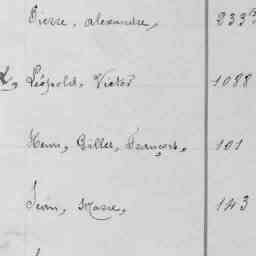 Pierre, alexandre, 233
L, Léopold, Victor 1088
Henri, Gilles, François, 101
Jean, Marie, 143